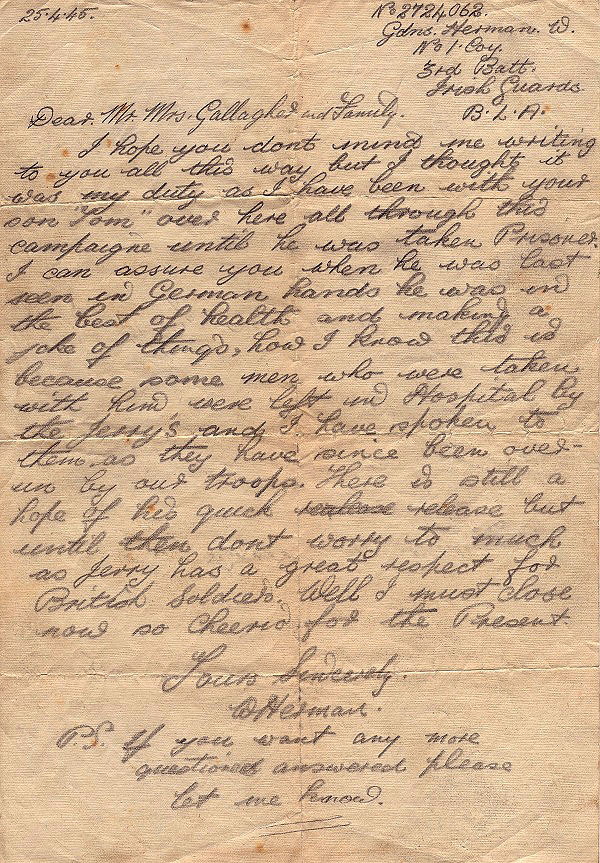 25.4.45.
No 2724062.
Gdns. Herman. W.
No 1. Coy.
3rd Batt.
Irish Guards
B. L. A.
Dear. Mr. Mrs. Gallagher and Family.
I hope you dont mind me writing
to you all this way but I thought it
was my duty as I have been with your
son "Tom" over here all through this
campaigne until he was taken Prisoner.
I can assure you when he was last
seen in German hands he was in
the best of health and making a
joke of things, how I know this is
because some men who were taken
with him were left in Hospital by
the Jerry's and I have spoken to
them as they have since been over-
un by our troops. There is still a
hope of his quick realease release but
until then dont worry to much
as Jerry has a great respect for
British Soldiers. Well I must close
now so Cheerio for the Present.
Yours Sincerely.
W Herman.
P.S. If you want any more
questions answered please
let me know.